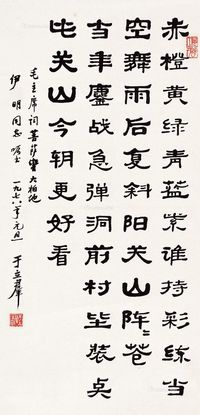 赤橙黄绿青蓝紫谁持彩练当
空舞雨后复斜阳关山阵々苍
当年鏖战急弹洞前村壁装点
此关山今朝更好看
毛主席词菩萨蛮大柏地
伊明同志嘱书 一九六六年元旦 于立群